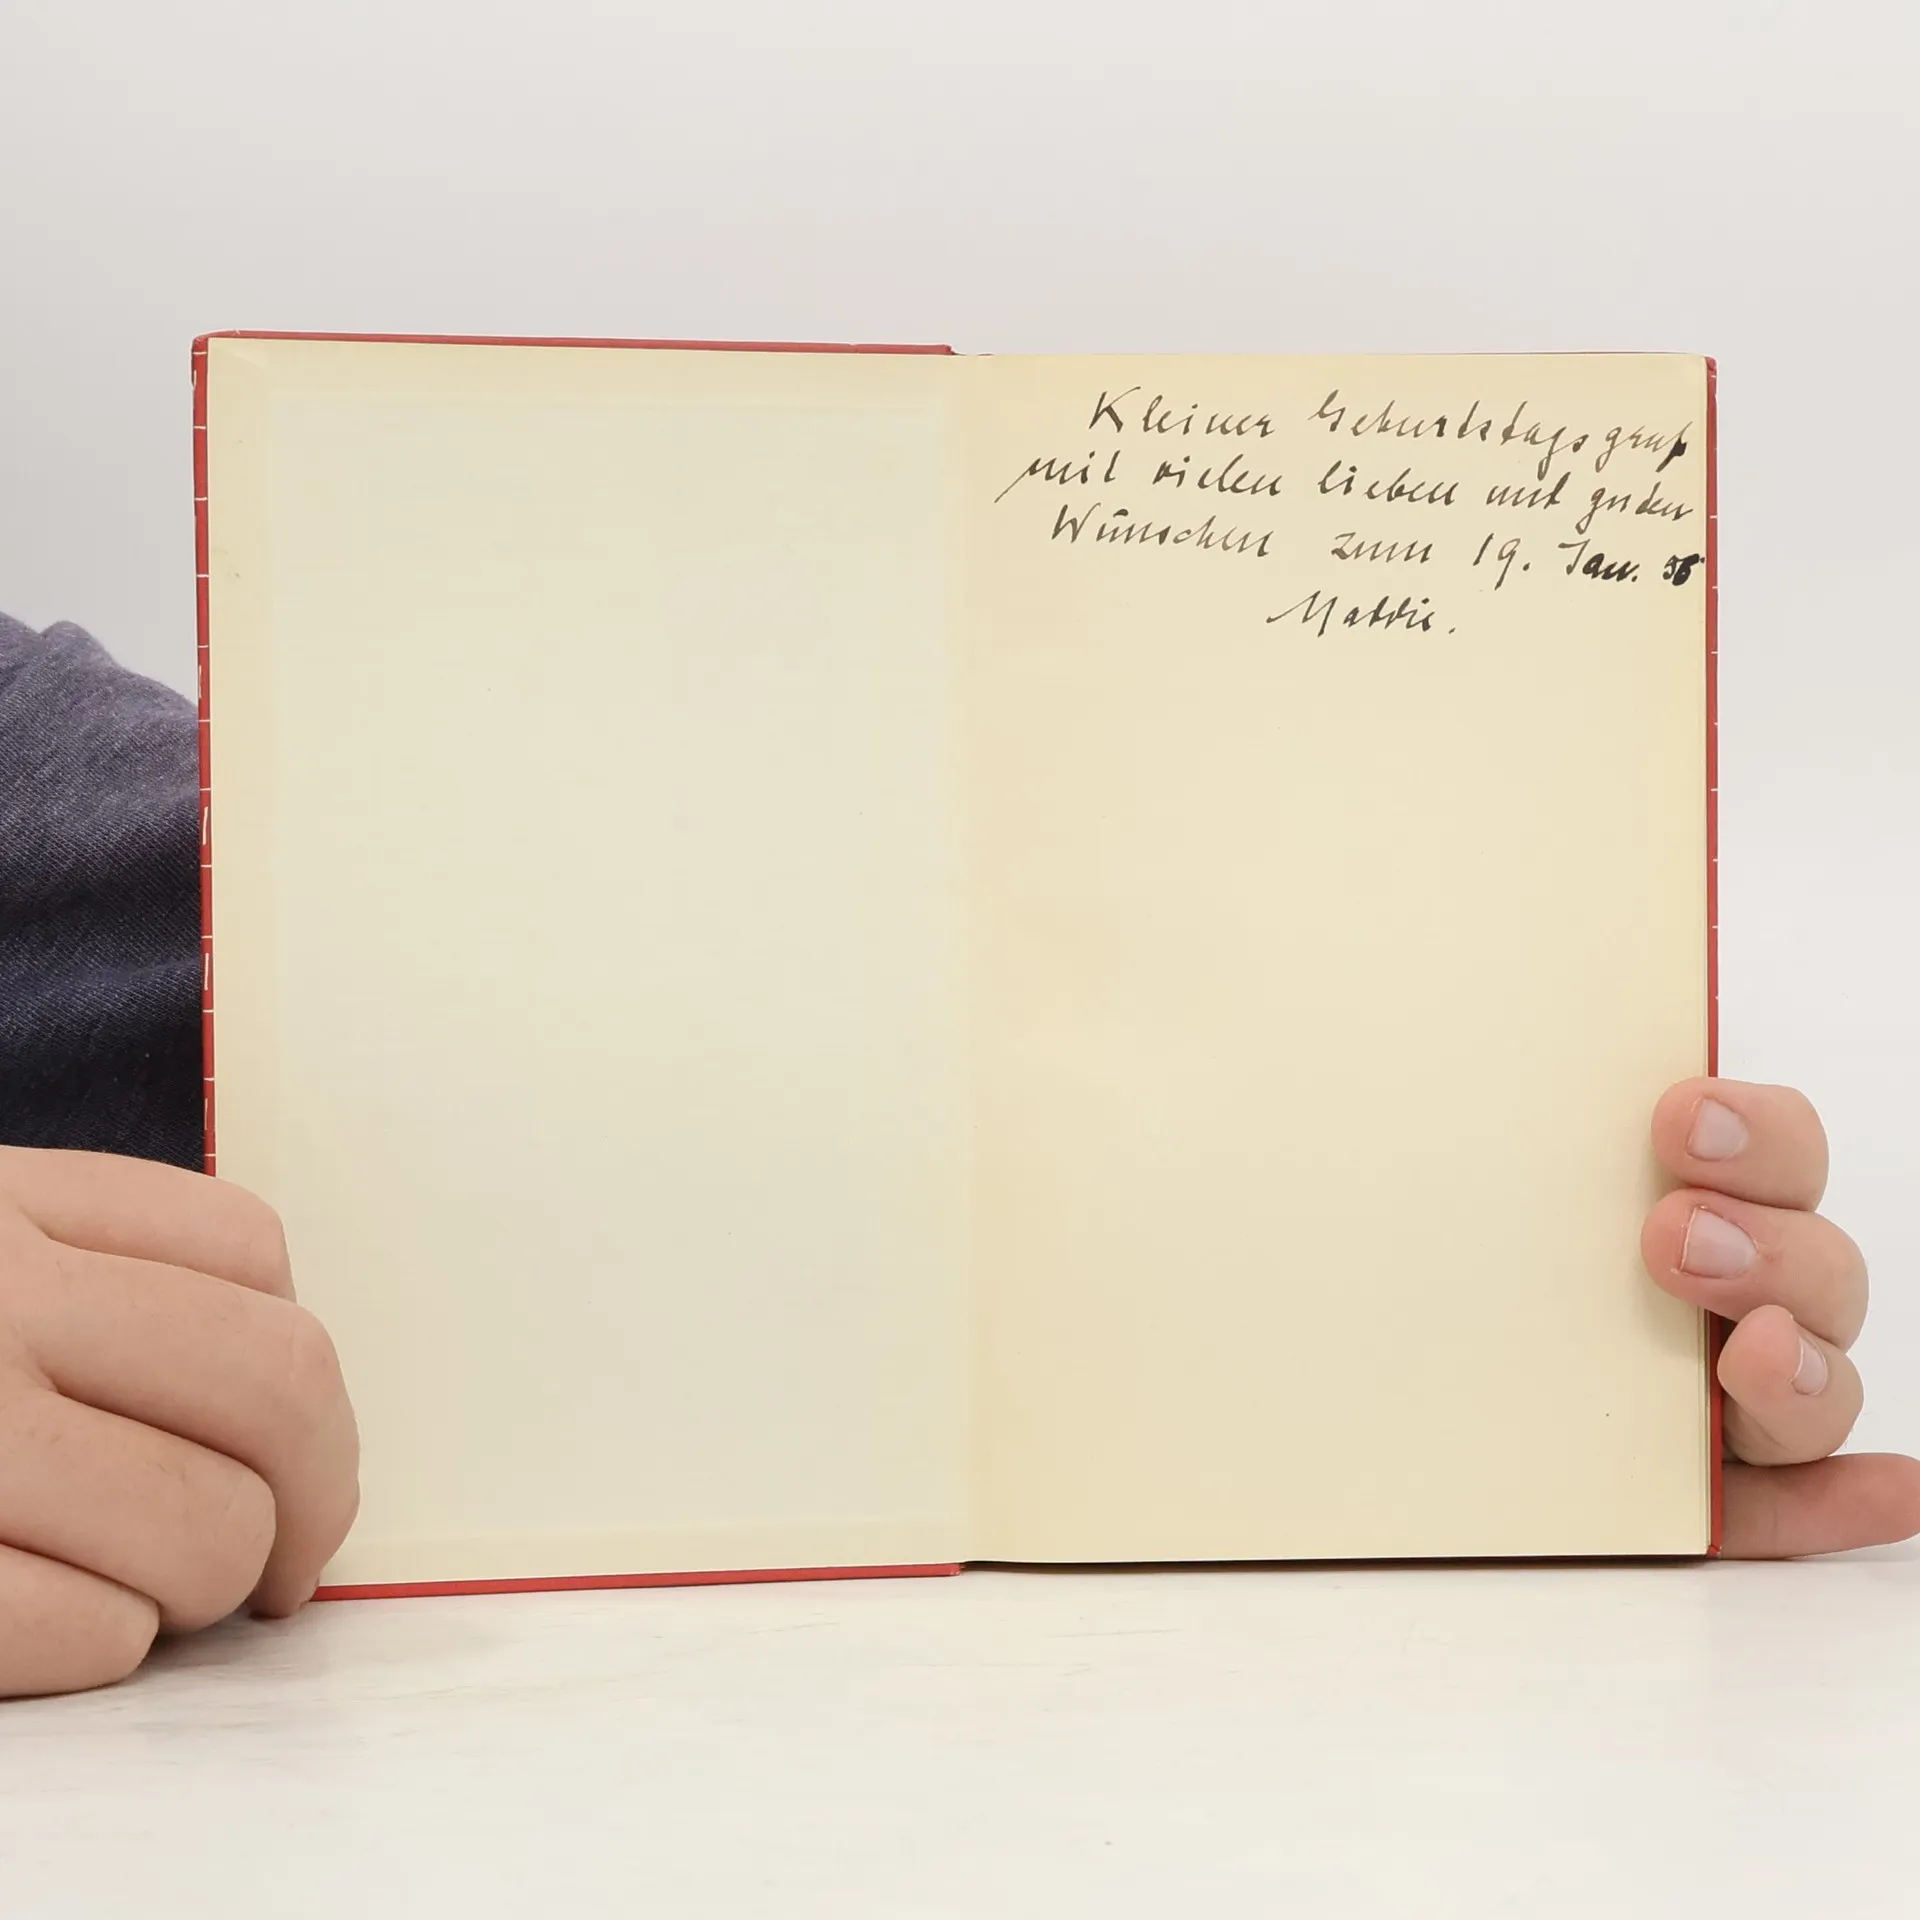 Kleiner Geburtstagsgruß
mit vielen lieben und guten
Wünschen zum 19. Jan.